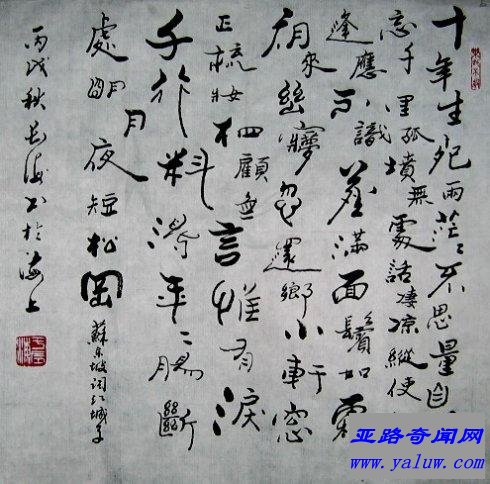 十年生死兩茫不思量自
忘千里孤墳無處話凄凉縱使
逢應不識塵滿面鬢如霜
夜來幽夢忽還鄉小軒窗
正梳妝相顧無言惟有淚
千行料得年〻腸斷
處明月夜短松岡 蘇東坡詞江城子
丙戌秋長海书於海上
亚路奇闻网
www.yaluw.com